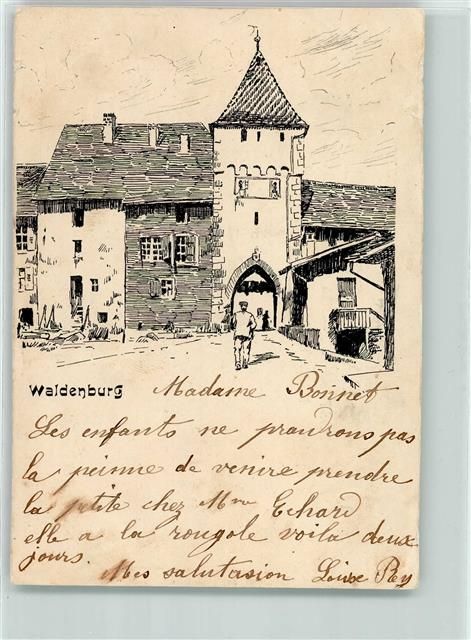 Waldenburg
Madame Bonnet
Les enfants ne prandrons pas
la peinne de venire prendre
la petite chez Mme Echard
elle a la rougole voilà deux
jours.
Mes salutasion Louise Rey